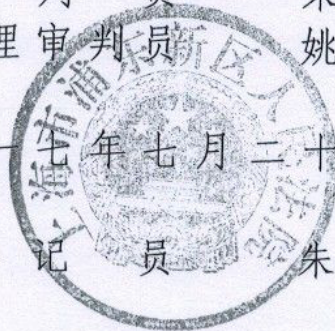 理审判员 姚
十七年七月二十
记员 朱
上海市浦东新区人民法院